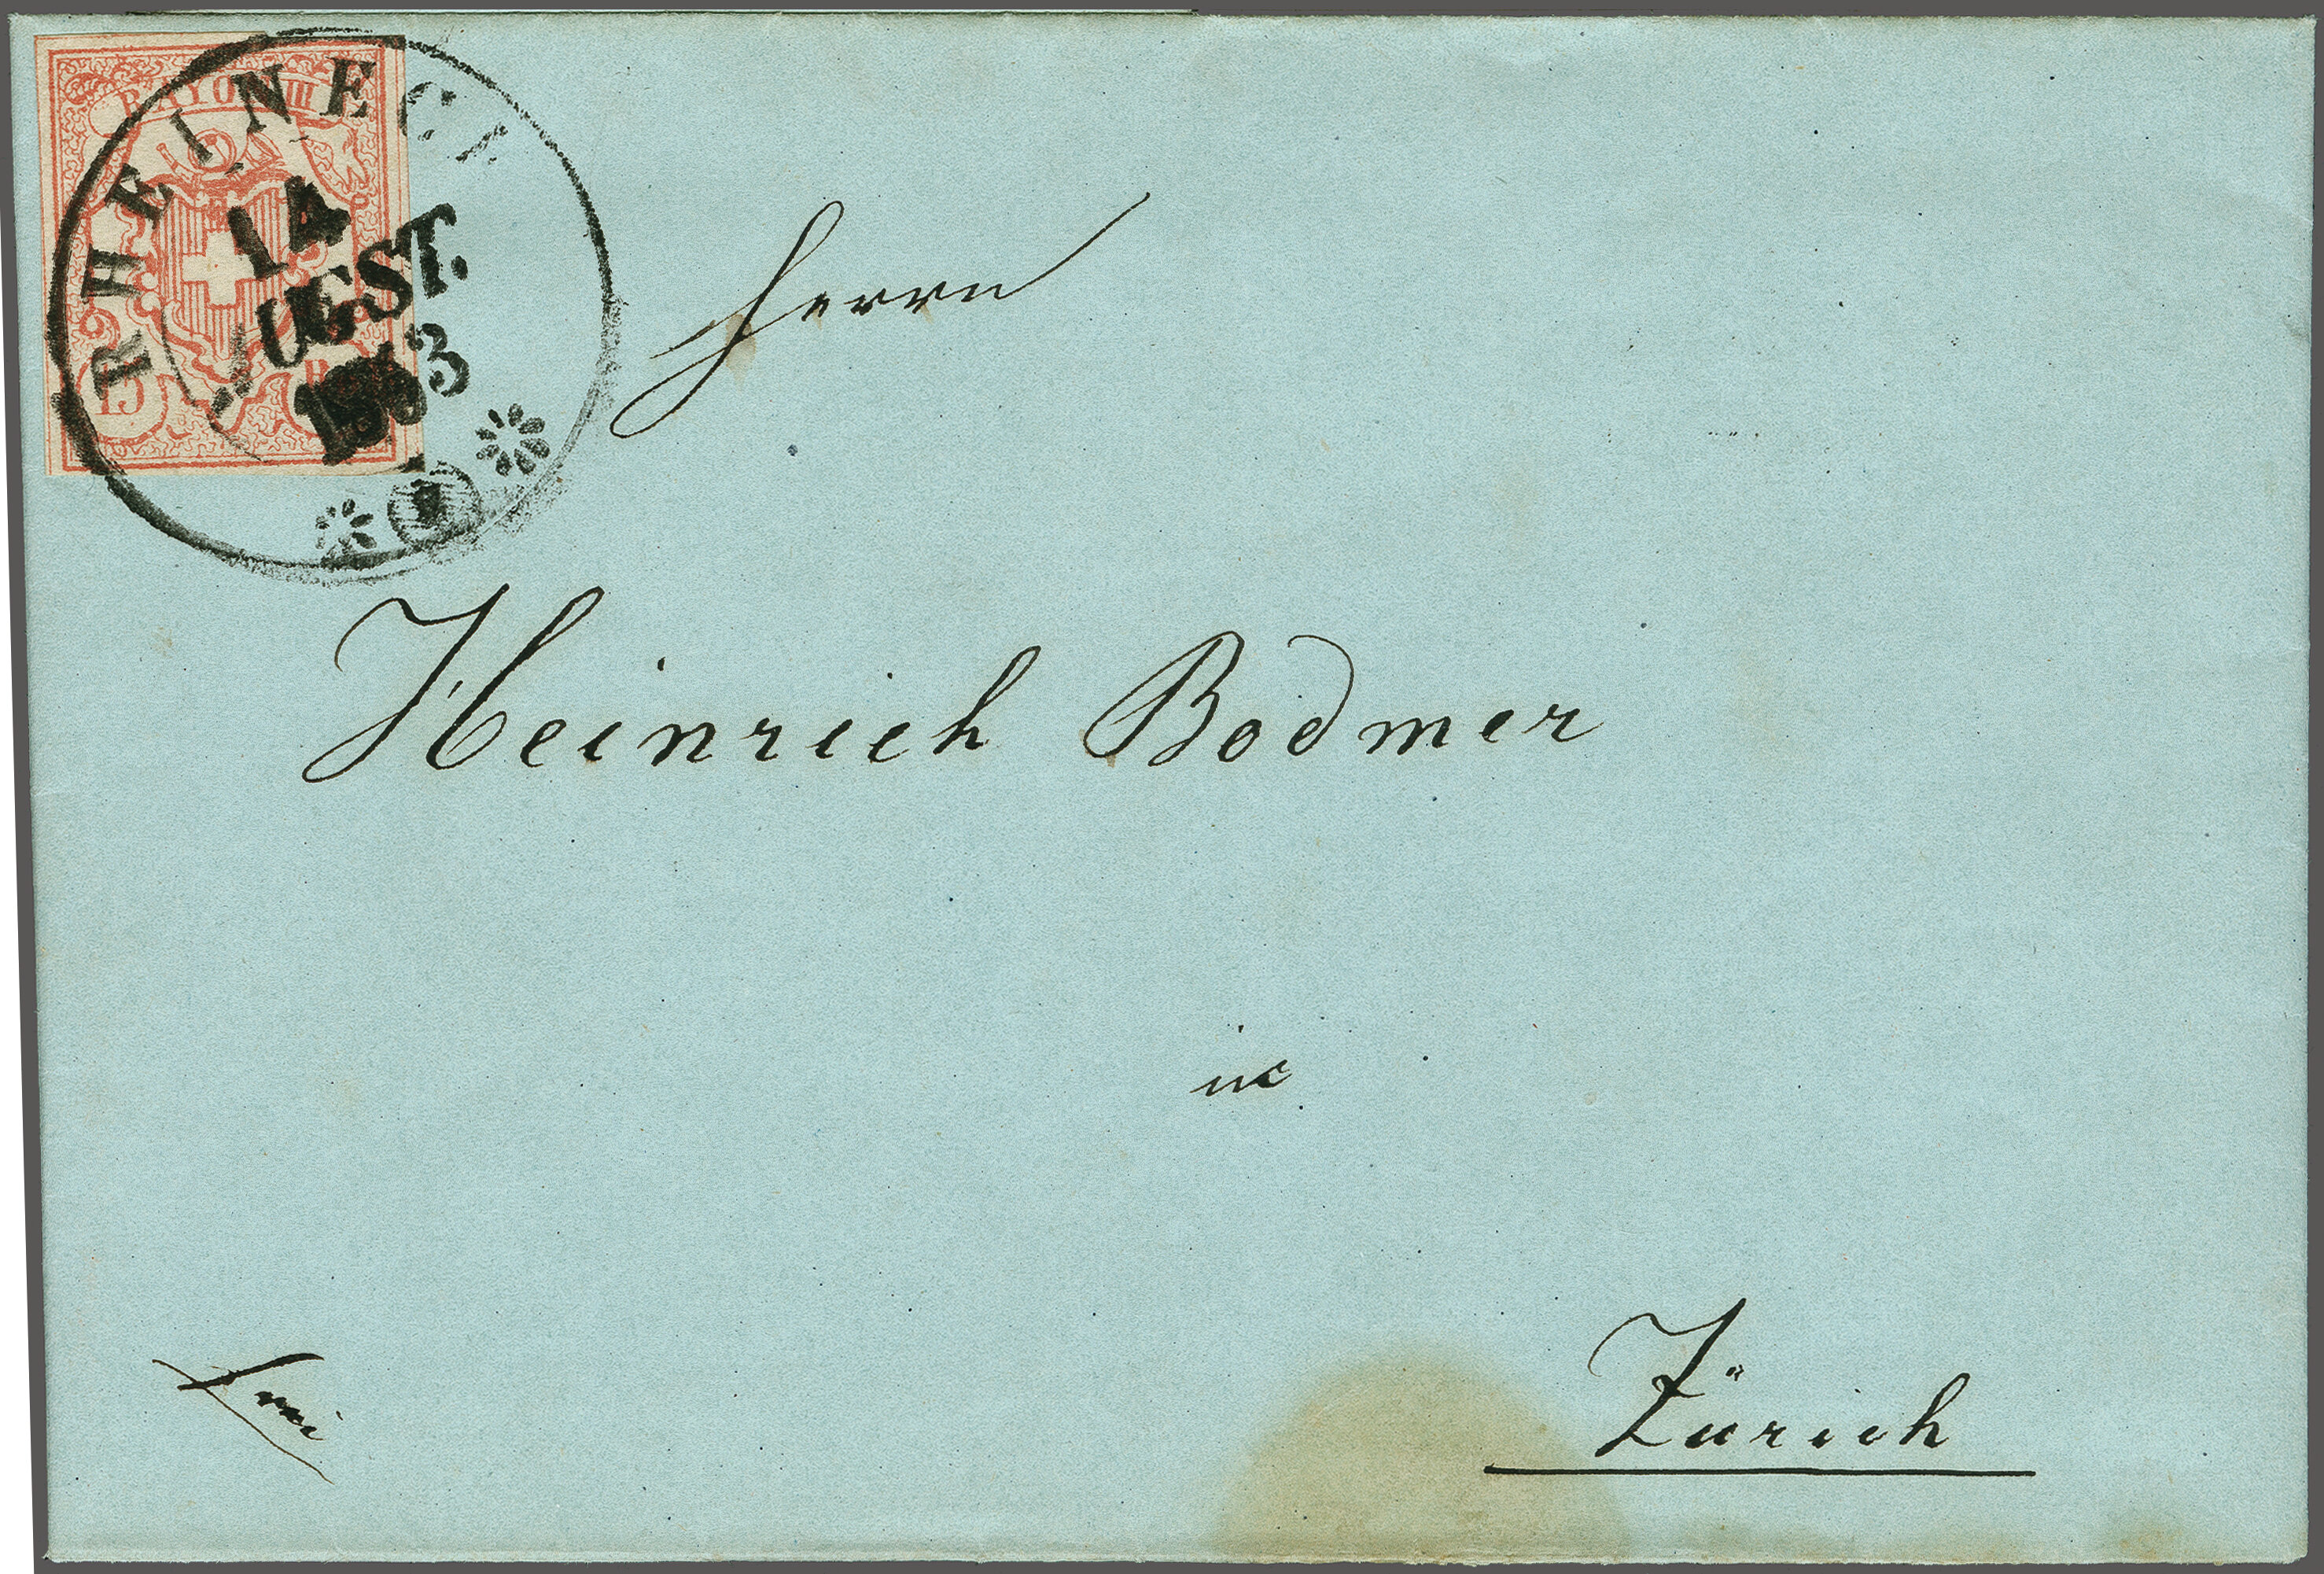 RAYON III
15
RHEINECK
14
AUGST.
1853
Herrn
Heinrich Bodmer
in
Zürich
frei